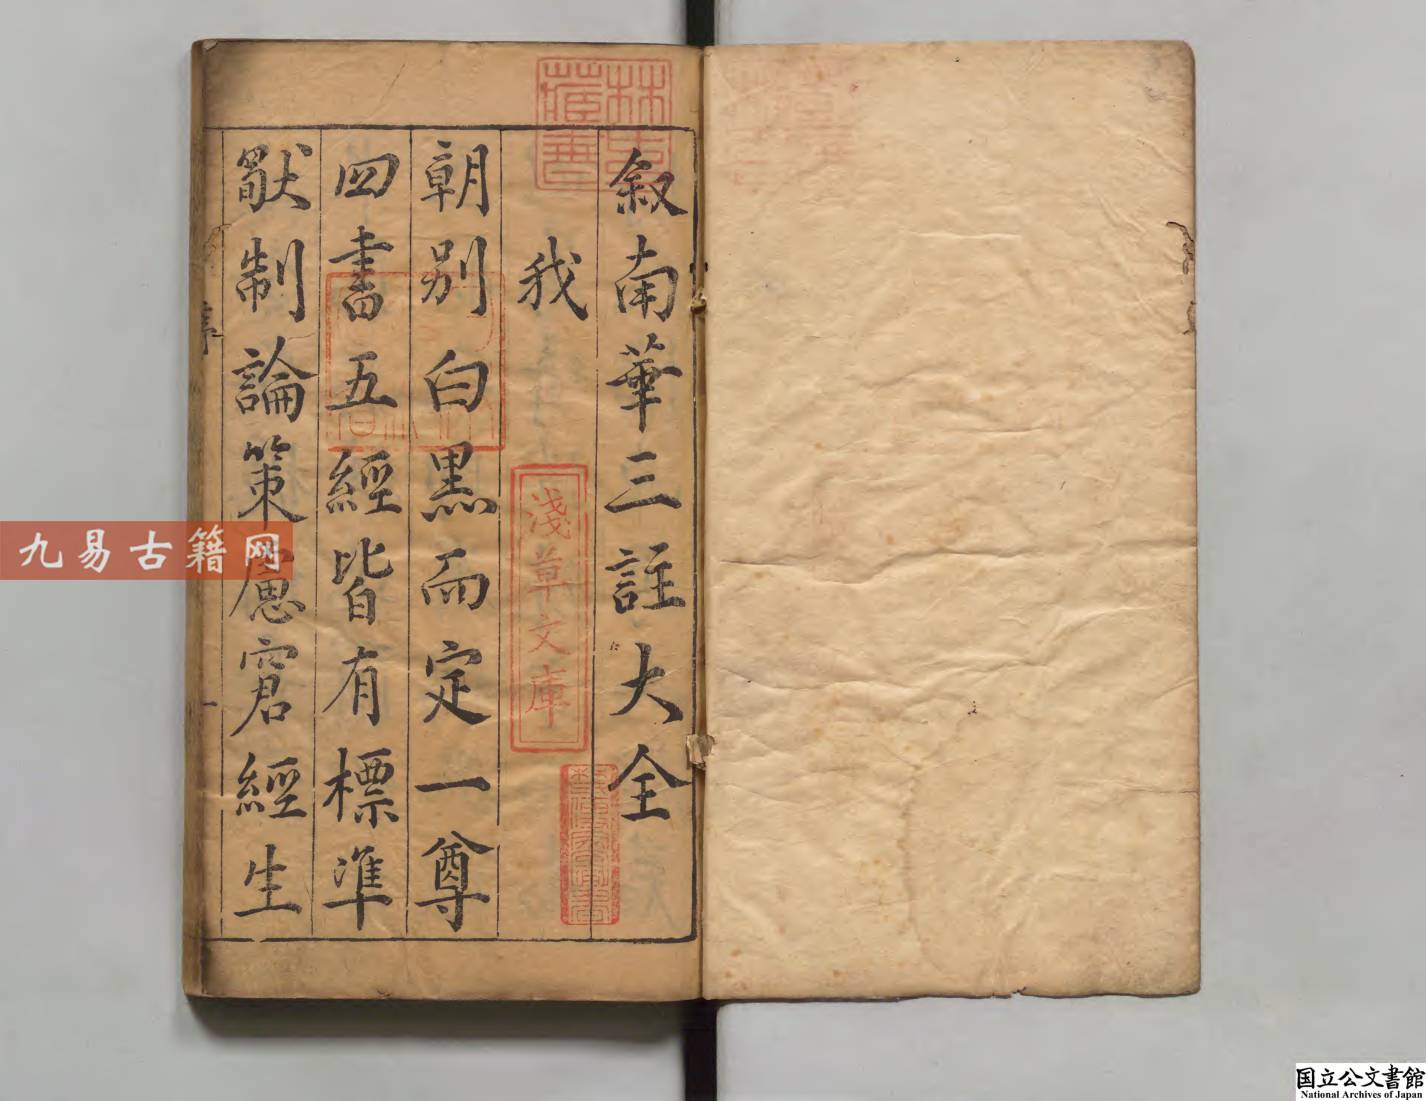 叙南華三註大全
我
朝别白黒而定一尊
四書五經皆有標準
猷制論策慮窘經生
序
一
林氏藏書
淺草文庫
九易古籍网
国立公文書館
National Archives of Japan